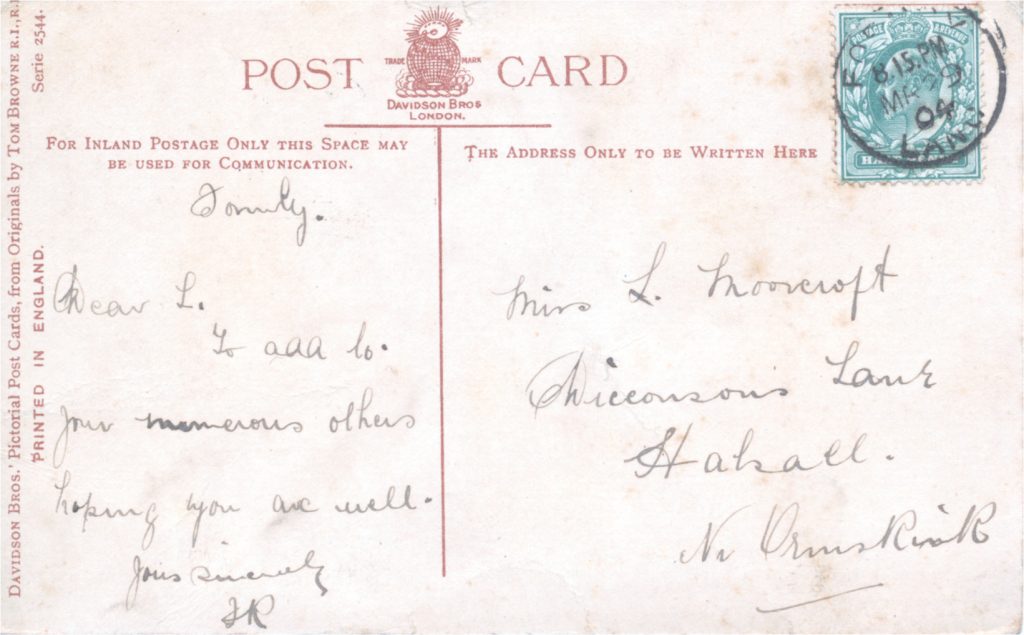 DAVIDSON BROS.' Pictorial Post Cards, from Originals by TOM BROWNE R.I., R.
Serie 2544.
PRINTED IN ENGLAND.
POST CARD
TRADE MARK
DAVIDSON BROS
LONDON.
FOR INLAND POSTAGE ONLY THIS SPACE MAY
BE USED FOR COMMUNICATION.
THE ADDRESS ONLY TO BE WRITTEN HERE
POSTAGE & REVENUE
8.15.PM
MR 29
04
LANC
Formby.
Dear L.
To add to.
your numerous others
hoping you are well.
Yours sincerely
Miss L. Moorcroft
Dicconsons Lane
Halsall.
Nr Ormskirk